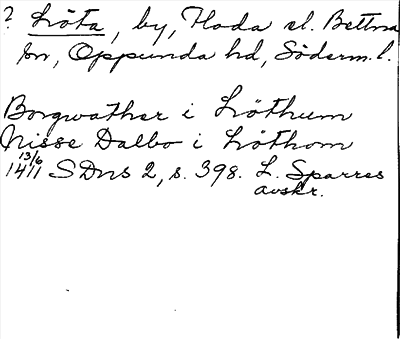 ? Löta, by, Floda el. Bettna
sn, Oppunda hd, Söderm. l.
Borgwather i Löthum
Nisse Dalbo i Löthom
13/6 1411 SDns 2, s. 398. L. Sparres
avskr.